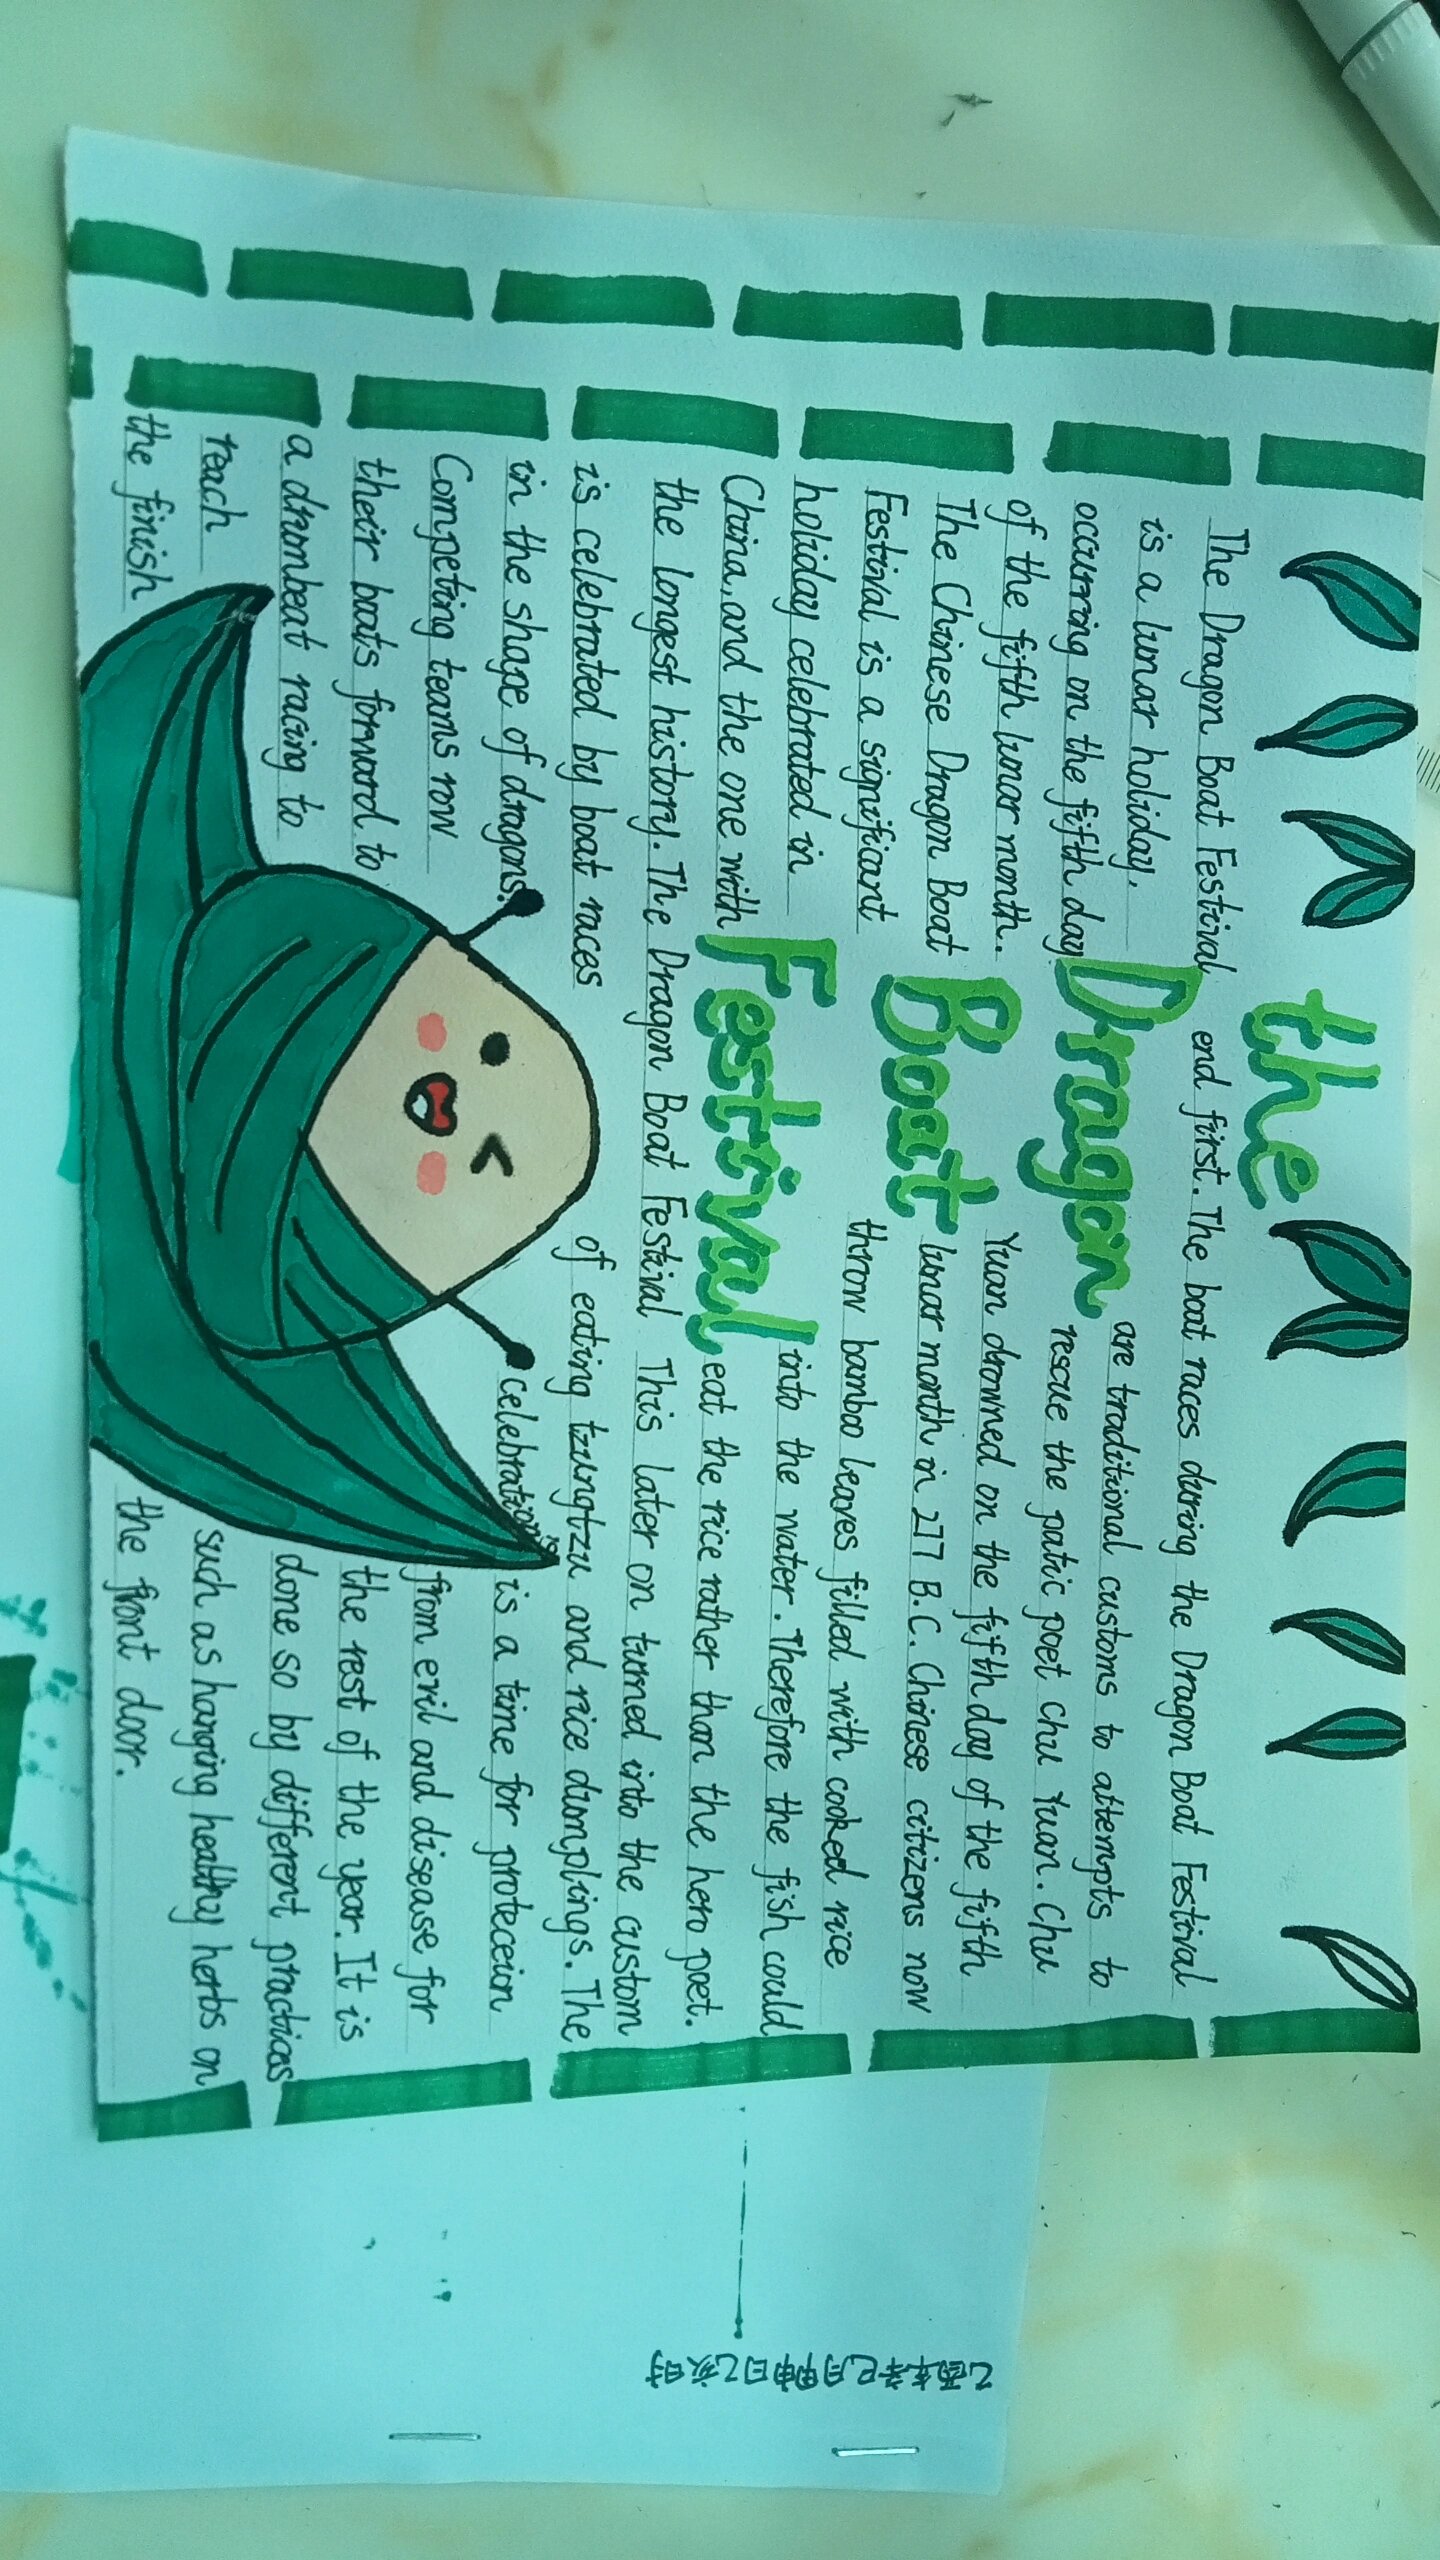 the
Dragon
Boat
Festival
The Dragon Boat Festival
is a lunar holiday,
occurring on the fifth day
of the fifth lunar month.
The Chinese Dragon Boat
Festival is a significant
holiday celebrated in
China, and the one with
the longest history. The Dragon Boat Festival
is celebrated by boat races
in the shape of dragons.
Competing teams row
their boats forward to
a drumbeat racing to
reach
the finish
end first. The boat races during the Dragon Boat Festival
are traditional customs to attempts to
rescue the patric poet Chu Yuan. Chu
Yuan drowned on the fifth day of the fifth
lunar month in 277 B.C. Chinese citizens now
throw bamboo leaves filled with cooked rice
into the water. Therefore the fish could
eat the rice rather than the hero poet.
This later on turned into the custom
of eating tzungtzu and rice dumplings. The
celebration's is a time for proteceion
from evil and disease for
the rest of the year. It is
done so by different practices
such as hanging healthy herbs on
the front door.